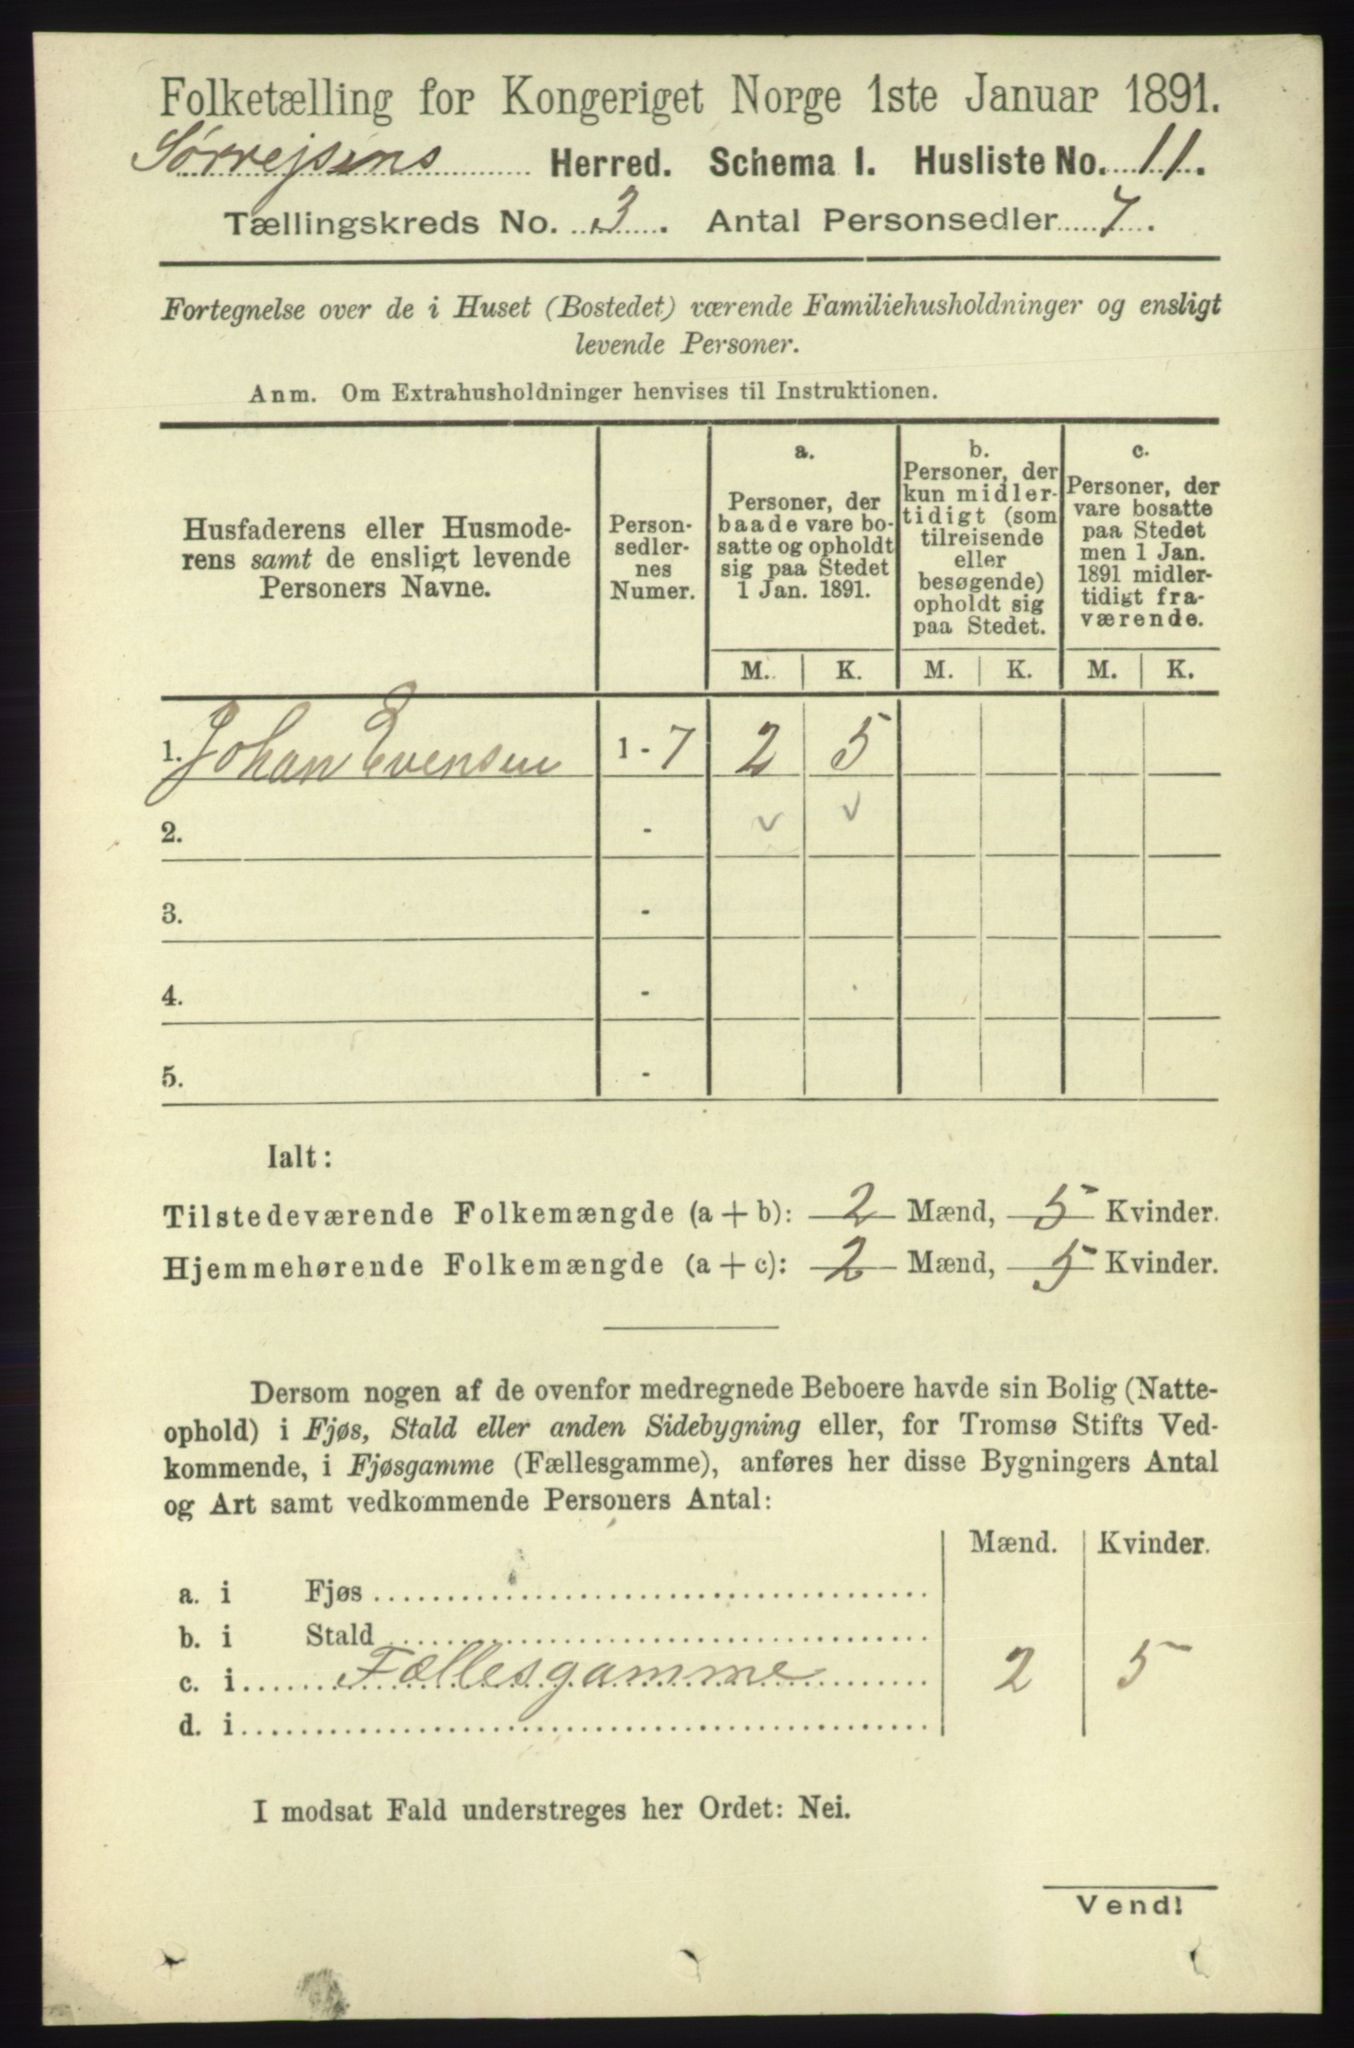 Folketælling for Kongeriget Norge 1ste Januar 1891.
Sørrejsens Herred. Schema 1. Husliste No. 11.
Tællingskreds No. 3. Antal Personsedler 7.
Fortegnelse over de i Huset (Bostedet) værende Familiehusholdninger og ensligt
levende Personer.
Anm. Om Extrahusholdninger henvises til Instruktionen.
Husfaderens eller Husmode-
rens samt de ensligt levende
Personers Navne.
Person-
sedler-
nes
Numer.
a.
Personer, der
baade vare bo-
satte og opholdt
sig paa Stedet
1 Jan. 1891.
b.
Personer, der
kun midler-
tidigt (som
tilreisende
eller
besøgende)
opholdt sig
paa Stedet.
c.
Personer, der
vare bosatte
paa Stedet
men 1 Jan.
1891 midler-
tidigt fra-
værende.
M. K. M. K. M. K.
1. Johan Evensen 1 - 7 2 5
2. - v v
3. -
4. -
5. -
Ialt:
Tilstedeværende Folkemængde (a + b): 2 Mænd, 5 Kvinder.
Hjemmehørende Folkemængde (a + c): 2 Mænd, 5 Kvinder.
Dersom nogen af de ovenfor medregnede Beboere havde sin Bolig (Natte-
ophold) i Fjøs, Stald eller anden Sidebygning eller, for Tromsø Stifts Ved-
kommende, i Fjøsgamme (Fællesgamme), anføres her disse Bygningers Antal
og Art samt vedkommende Personers Antal:
Mænd. Kvinder.
a. i Fjøs
b. i Stald
c. i Fællesgamme 2 5
d. i
I modsat Fald understreges her Ordet: Nei.
Vend!